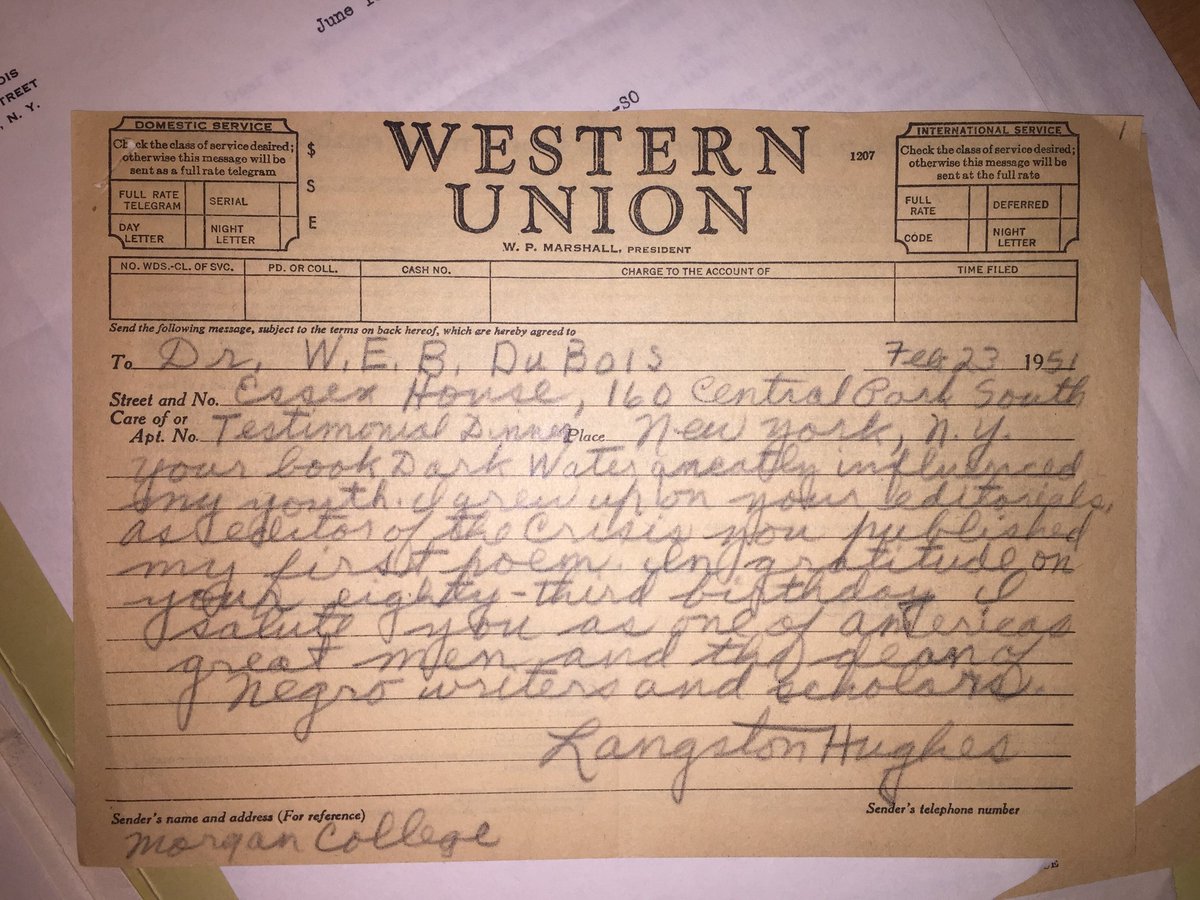 June 1
OIS
TREET
, N. Y.
-SO
DOMESTIC SERVICE
Check the class of service desired;
otherwise this message will be
sent as a full rate telegram
FULL RATE
TELEGRAM
SERIAL
DAY
LETTER
NIGHT
LETTER
$
S
E
WESTERN
UNION
1207
W. P. MARSHALL, PRESIDENT
INTERNATIONAL SERVICE
Check the class of service desired;
otherwise this message will be
sent at the full rate
FULL
RATE
DEFERRED
CODE
NIGHT
LETTER
NO. WDS.-CL. OF SVC. PD. OR COLL. CASH NO. CHARGE TO THE ACCOUNT OF TIME FILED
Send the following message, subject to the terms on back hereof, which are hereby agreed to
To Dr. W. E. B. Du Bois Feb 23 1951
Street and No. Essex House, 160 Central Park South
Care of or
Apt. No. Testimonial Dinner Place New York, N.Y.
your book Dark Water greatly influenced
my youth. I grew up on your editorials.
as editor of the Crisis you published
my first poem. In gratitude on
your eighty-third birthday I
salute you as one of americas
great men and the dean of
Negro writers and scholars.
Langston Hughes
Sender's name and address (For reference) Sender's telephone number
Morgan College